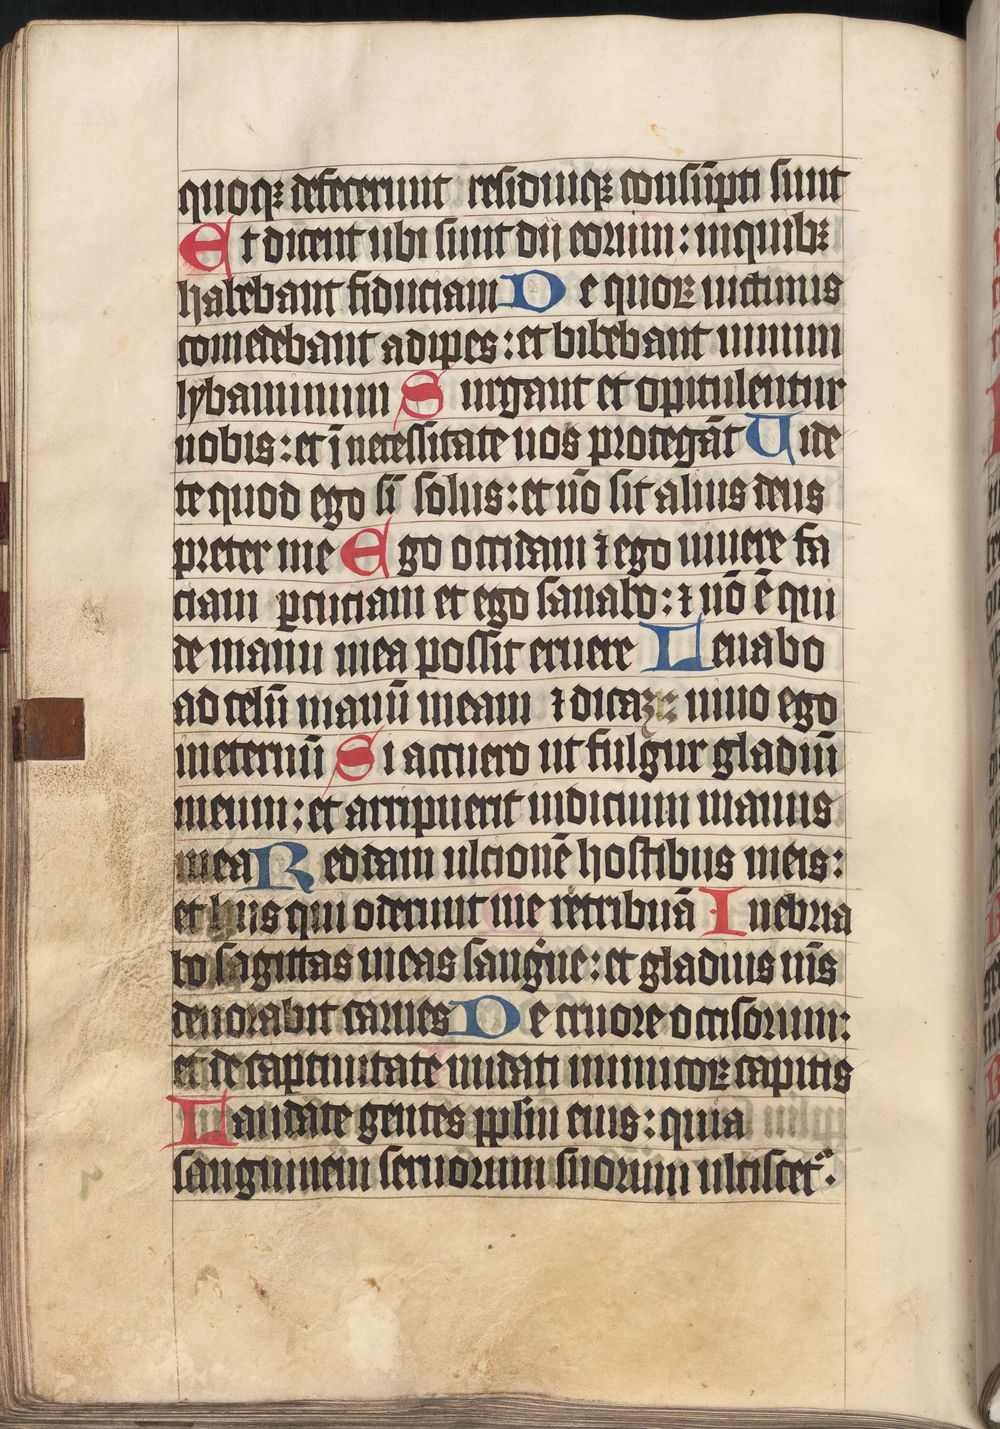 quoqꝫ defecerunt residuiqꝫ consūpti sunt
Et dicent ubi sunt dij eorum: in quibꝫ
habebant fiduciam De quoꝝ uictimis
comedebant adipes: et bibebant uinum
lybaminum Surgant et opitulentur
uobis: et ī necessitate uos protegāt Uide
te quod ego sū solus: et nō sit alius deus
preter me Ego occidam ⁊ ego uiuere fa
ciam ꝑcuciam et ego sanabo: ⁊ nō ē qui
de manu mea possit eruere Leuabo
ad celū manū meam ⁊ dicaꝫ uiuo ego
in eternū Si accuero ut fulgur gladiū
meum: et arripuerit iudicium manus
mea Reddam ulcionē hostibus meis:
et hiis qui oderunt me retribuā Inebria
bo sagittas meas sanguīe: et gladius me͞s
deuorabit carnes De cruore occisorum:
et de captiuitate nudati inimicoꝝ capitis
Laudate gentes pplm̄ eius: quia
sanguinem seruorum suorum ulciscet᷑.